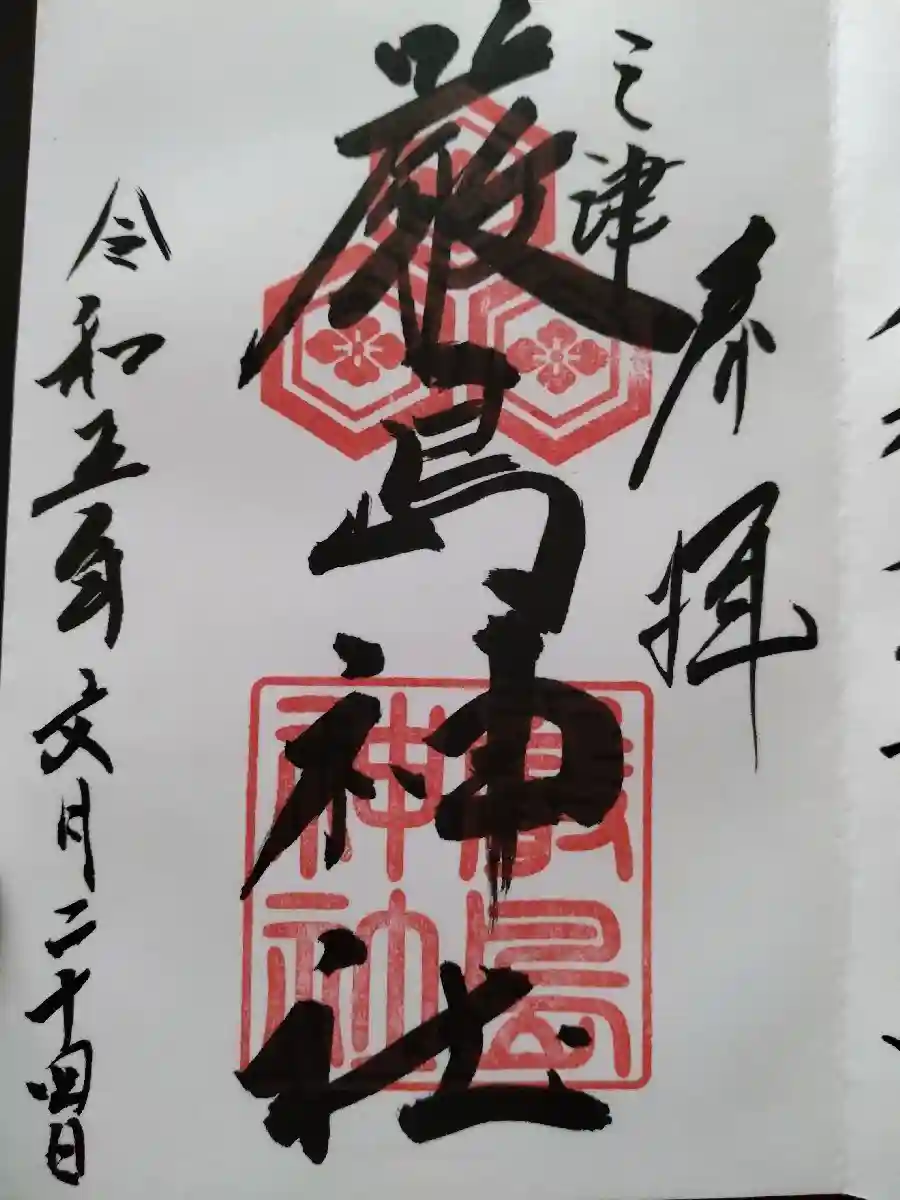 奉拝
三津
厳島神社
嚴島
神社
令和五年文月二十四日